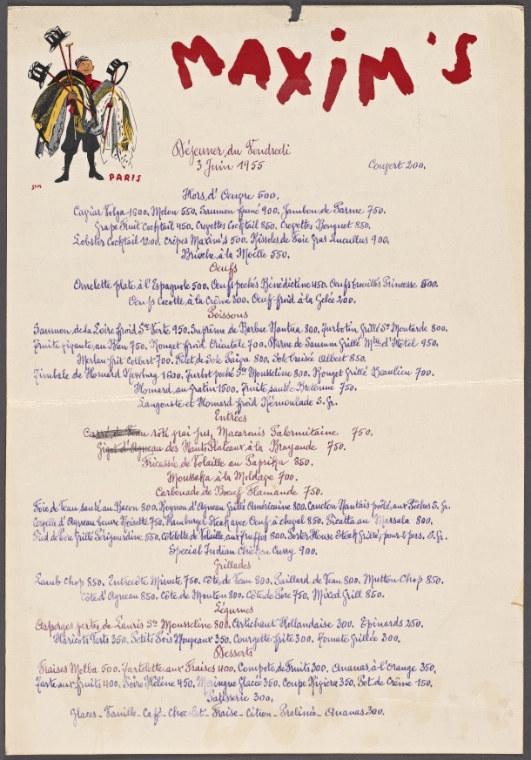 MAXIM'S
SEM
PARIS
Déjeuner du Vendredi
3 Juin 1955
Couvert 200.
Hors d'Oeuvre 500.
Caviar Volga 1600. Melon 550. Saumon fumé 900. Jambon de Parme 750.
Grape Fruit Cocktail 450. Crevettes Cocktail 850. Crevettes Bouquet 850.
Lobster Cocktail 1200. Crêpes Maxim's 500. Rissoles de Foie Gras Lucullus 900.
Brioche à la Moëlle 550.
Oeufs
Omelette plate à l'Espagnole 500. Oeufs pochés Bénédictine 450. Oeufs brouillés Princesse 500.
Oeufs Cocotte à la Crème 300. Oeuf froid à la Gelée 200.
Poissons
Saumon de la Loire froid Sce Verte 950. Suprême de Barbue Nantua 800. Turbotin Grillé Sce Moutarde 800.
Truite au Bleu 750. Rouget froid Orientale 700. Darne de Saumon Grillé Mtre d'Hôtel 950.
Merlan frit Colbert 700. Filet de Sole 800. Sole braisée Albert 850.
Timbale de Homard Newburg 1600. Turbot poché Sce Mousseline 800. Rouget Grillé Beaulieu 700.
Homard au Gratin 1500. Truite sautée 700.
Langouste et Homard froid Rémoulade S.G.
Entrées
Carré de Veau rôti vrai jus, Macaronis Palermitaine 750.
Gigot d'Agneau des Hauts Plateaux à la Brayaude 750.
Fricassée de Volaille au Paprika 850.
Moussaka à la 700.
Carbonade de Boeuf Flamande 750.
Foie de Veau sauté au Bacon 800. Rognon d'Agneau Grillé Américaine 800. Caneton Nantais poêlé aux Pêches S.G.
Cervelle d'Agneau beurre Noisette 750. Hamburger Steak avec Oeuf à cheval 850. Picatta au Marsala 800.
Pied de Porc Grillé Périgourdine 550. Côtelette de Volaille aux truffes 800. Porter House Steak Grillé, pour 2 pers. S.G.
Special Indian Chicken Curry 900.
Grillades
Lamb Chop 850. Entrecôte Minute 750. Côte de Veau 800. Paillard de Veau 800. Mutton Chop 850.
Côte d'Agneau 850. Côte de Mouton 800. Côte de Porc 750. Mixed Grill 850.
Légumes
Asperges vertes de Lauris Sce Mousseline 800. Artichaut Hollandaise 300. Epinards 250.
Haricots Verts 350. Petits Pois Nouveaux 350. Courgette frite 300. Tomate Grillée 200.
Desserts
Fraises Melba 500. Tartelette aux Fraises 400. Compote de Fruits 300. Ananas à l'Orange 350.
Tarte aux fruits 400. Poire Hélène 450. Meringue Glacée 350. Coupe Riviera 350. Pot de Crème 150.
Patisserie 300.
Glaces - Vanille - Café - Chocolat - Fraise - Citron - Praliné - Ananas 300.